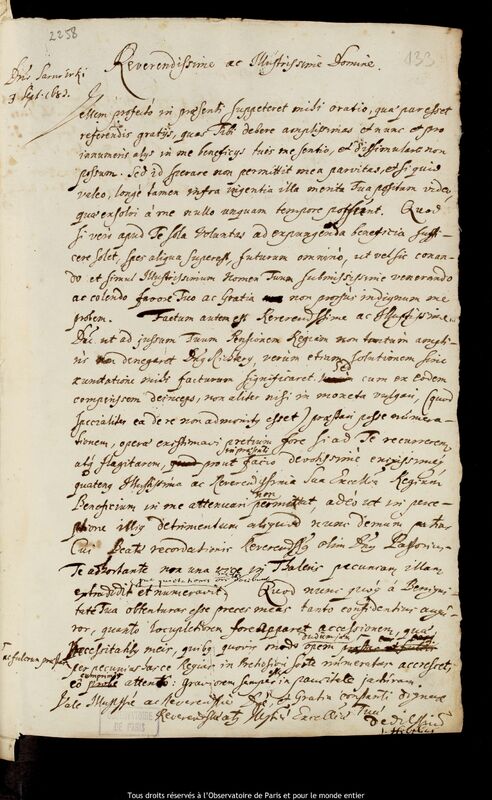 2258
133
Reverendissime ac Illustrissime Domine.
Dno Sarnowski
3 Sept. 1683.
Vellem profecto in præsenti suppeteret mihi oratio, qua par esset
referendis gratijs, quas Tibi debere amplissimas et nunc et pro
innumeris alijs in me beneficijs tuis me sentio, et dissimulare non
possum. Sed id sperare non permittit mea parvitas, etsi quid
valeo, longè tamen infra ingentia illa merita Tua positum video,
quæ exsolvi à me nullo unquam tempore possent. Quod
si verò apud Te sola voluntas ad expungenda beneficia suffi-
cere solet, spes aliqua superest, futurum omninò, ut vel sic conan-
do et simul Illustrissimum Nomen Tuum submississimè venerando
ac colendo favore Tuo ac Gratia non prorsus indignum me
probem. Factum autem est Reverendissime ac Illustrissime
Dne ut ad jussum Tuum Pensionem Regiam non tantum ampli-
us non denegaret verum etiam solutionem sine
cunctatione mihi facturum significaret. Sed cum ex eodem
comperissem deinceps, non aliter nisi in moneta vulgari, (quod
specialiter ea de re non admonitus esset) præstari posse numera-
tionem, operæ existimavi pretium fore si ad Te recurrerem
atq flagitarem, prout in præsenti facio devotissimè enixissimeq
quatenq Illustrissima ac Reverendissima Sua Excellentia Regium
Beneficium in me attenuari non permittat, adeò ut in perce-
ptione illius detrimentum aliquod nunc demum patiar.
Cui Beatæ recordationis Reverendissq olim Dnq
Te adhortante non una vice in Taleris pecuniam illam
extradidit et numeravit. Quod nunc quoq à Benigni-
tate Tua obtenturas esse preces meas tanto confidentius augu-
ror, quanto locupletiorem fore apparet accessionem, quæ
necessitatibus meis, quibus quovis modo opem
per pecunias arce Regiæ in
eò attento: graviorem semper in paucitate jacturam.
Vale Illustrissime ac Reverendissime et Gratia constanti dignare
Reverendissimæ atq Illustris Excellentiæ Tuæ
deditissimum
J. Hevelius
OBSERVATOIRE
DE PARIS
Tous droits réservés à l'Observatoire de Paris et pour le monde entier